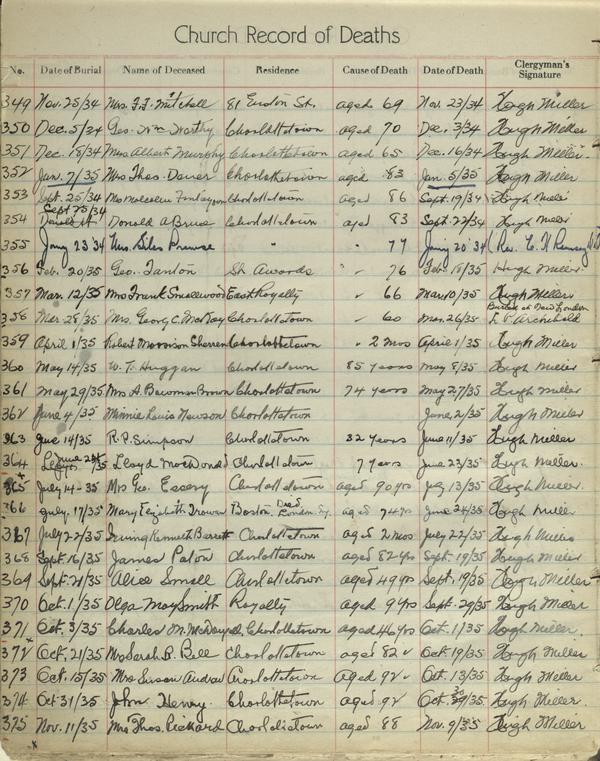 Church Record of Deaths
No. Date of Burial Name of Deceased Residence Cause of Death Date of Death Clergyman's Signature
349 Nov. 25/34 Mrs. F.F. Mitchell 81 Euston St. aged 69 Nov. 23/34 Hugh Miller
350 Dec. 5/34 Geo. Wm Worthy Charlottetown aged 70 Dec. 3/34 Hugh Miller
351 Dec. 18/34 Mrs Albert Murphy Charlottetown aged 65 Dec. 16/34 Hugh Miller.
352 Jan. 7/35 Mrs Thos. Charlottetown aged 83 Jan. 5/35 Hugh Miller
353 Sept. 25/34 Mrs Malcolm Finlayson Charlottetown aged 86 Sept. 19/34 Hugh Miller
354 Sept 25/34 Donald A Bruce Charlottetown aged 83 Sept. 22/34 Hugh Miller
355 23 '34 Mrs. Silas " " 77 20 '34 (Rev.
356 Feb. 20/35 Geo. Tanton St. Awards " 76 Feb. 18/35 Hugh Miller
357 Mar. 12/35 Mrs Frank Smallwood East Royalty " 66 Mar 10/35 Hugh Miller
358 Mar. 28/35 Mrs. George C. MacKay Charlottetown " 60 Mar. 26/35 Buried at New London Archibald
359 April 1/35 Robert Morrison Sherren Charlottetown " 2 mos April 1/35 Hugh Miller
360 May 14/35 W. T. Huggan Charlottetown 85 years May 8/35 Hugh Miller
361 May 29/35 Mrs A. Bowman Brown Charlottetown 74 years May 27/35 Hugh Miller
362 June 4/35 Minnie Louis Newson Charlottetown June 2/35 Hugh Miller
363 June 14/35 R. P. Simpson Charlottetown 32 years June 11/35 Hugh Miller
364 June /35 Lloyd MacDonald Charlottetown 7 years June 23/35 Hugh Miller.
365 July 14-35 Mrs Geo. Essery Charlottetown aged 90 yrs July 13/35 Hugh Miller.
366 July 17/35 Mary Elizabeth Boston Died aged 74 yrs June 24/35 Hugh Miller
367 July 22/35 Irving Kenneth Barrett Charlottetown aged 2 mos July 22/35 Hugh Miller
368 Sept. 16/35 James Paton Charlottetown aged 82 yrs Sept. 19/35 Hugh Miller
369 Sept. 21/35 Alice Small Charlottetown aged 49 yrs Sept. 19/35 Hugh Miller
370 Oct. 1/35 Olga May Smith Royalty aged 9 yrs Sept. 29/35 Hugh Miller
371 Oct. 3/35 Charles M. Charlottetown aged 46 yrs Oct. 1/35 Hugh Miller.
372 Oct. 21/35 Mrs Sarah B. Bell Charlottetown aged 82 Oct. 19/35 Hugh Miller
373 Oct. 15/35 Mrs Charlottetown aged 92 Oct. 13/35 Hugh Miller
374 Oct 31/35 John Henry. Charlottetown aged 92 Oct. /35 Hugh Miller.
375 Nov. 11/35 Mrs Thos. Pickard Charlottetown aged 88 Nov. 9/35 Hugh Miller